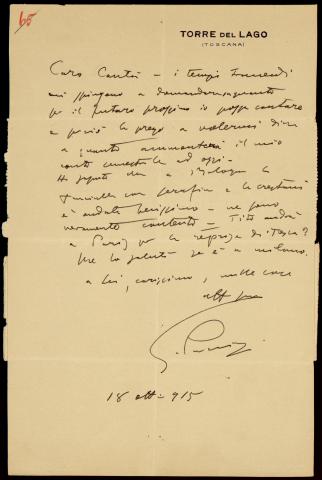 65
TORRE DEL LAGO
(TOSCANA)
Caro Cantù – i tempi tremendi
mi spingono a domandare quanto
per il futuro prossimo io possa contare
e perciò la prego a volermi dire
a quanto ammonterà il mio
conto semestrale ad oggi.
Ho saputo che a Bologna la
Fanciulla con Serafin e la
è andata benissimo – ne sono
veramente contento – Tito andrà
a Parigi per la reprise di Tosca?
Me lo saluti se è a Milano.
a lei, carissimo, mille cose
aff
G. Puccini
18 ott. 915